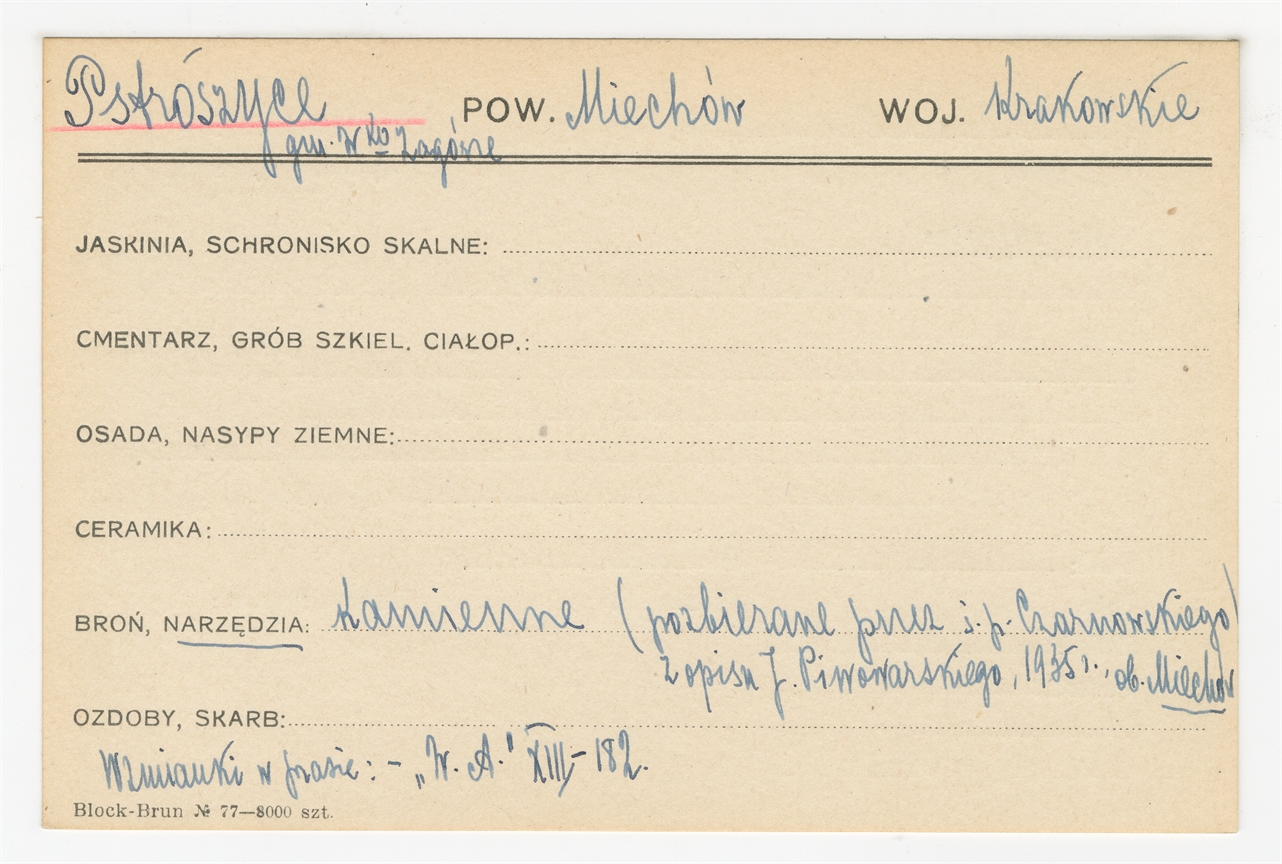 Pstrószyce POW. Miechów WOJ. Krakowskie
gm. W ko Zagórze
JASKINIA, SCHRONISKO SKALNE:
CMENTARZ, GRÓB SZKIEL. CIAŁOP.:
OSADA, NASYPY ZIEMNE:
CERAMIKA:
BROŃ, NARZĘDZIA: kamienne (pozbierane przez ś.p. Czarnowskiego)
z opisu J. Piwowarskiego, 1935 r., ob. Miechów
OZDOBY, SKARB:
Wzmianki w prasie: - „W. A." XIII,- 182.
Block-Brun № 77—8000 szt.